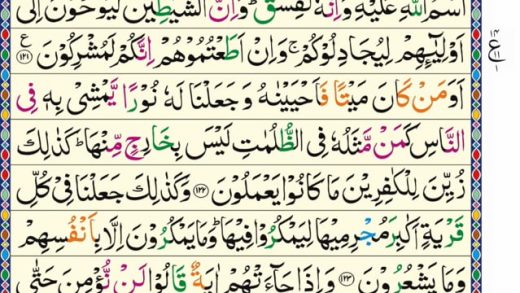 اسْمُ اللّٰهِ عَلَيْهِ وَاِنَّهٗ لَفِسْقٌ ؕ وَاِنَّ الشَّيٰطِيْنَ لَيُوْحُوْنَ اِلٰٓى
اَوْلِيٰٓـِٕهِمْ لِيُجَادِلُوْكُمْ ۚ وَاِنْ اَطَعْتُمُوْهُمْ اِنَّكُمْ لَمُشْرِكُوْنَ ﴿۱۲۱﴾ ع
اَوَمَنْ كَانَ مَيْتًا فَاَحْيَيْنٰهُ وَجَعَلْنَا لَهٗ نُوْرًا يَّمْشِىْ بِهٖ فِى
النَّاسِ كَمَنْ مَّثَلُهٗ فِى الظُّلُمٰتِ لَيْسَ بِخَارِجٍ مِّنْهَا ؕ كَذٰلِكَ
زُيِّنَ لِلْكٰفِرِيْنَ مَا كَانُوْا يَعْمَلُوْنَ ﴿۱۲۲﴾ وَكَذٰلِكَ جَعَلْنَا فِىْ كُلِّ
قَرْيَةٍ اَكٰبِرَ مُجْرِمِيْهَا لِيَمْكُرُوْا فِيْهَا ؕ وَمَا يَمْكُرُوْنَ اِلَّا بِاَنْفُسِهِمْ
وَمَا يَشْعُرُوْنَ ﴿۱۲۳﴾ وَاِذَا جَآءَتْهُمْ اٰيَةٌ قَالُوْا لَنْ نُّؤْمِنَ حَتّٰى